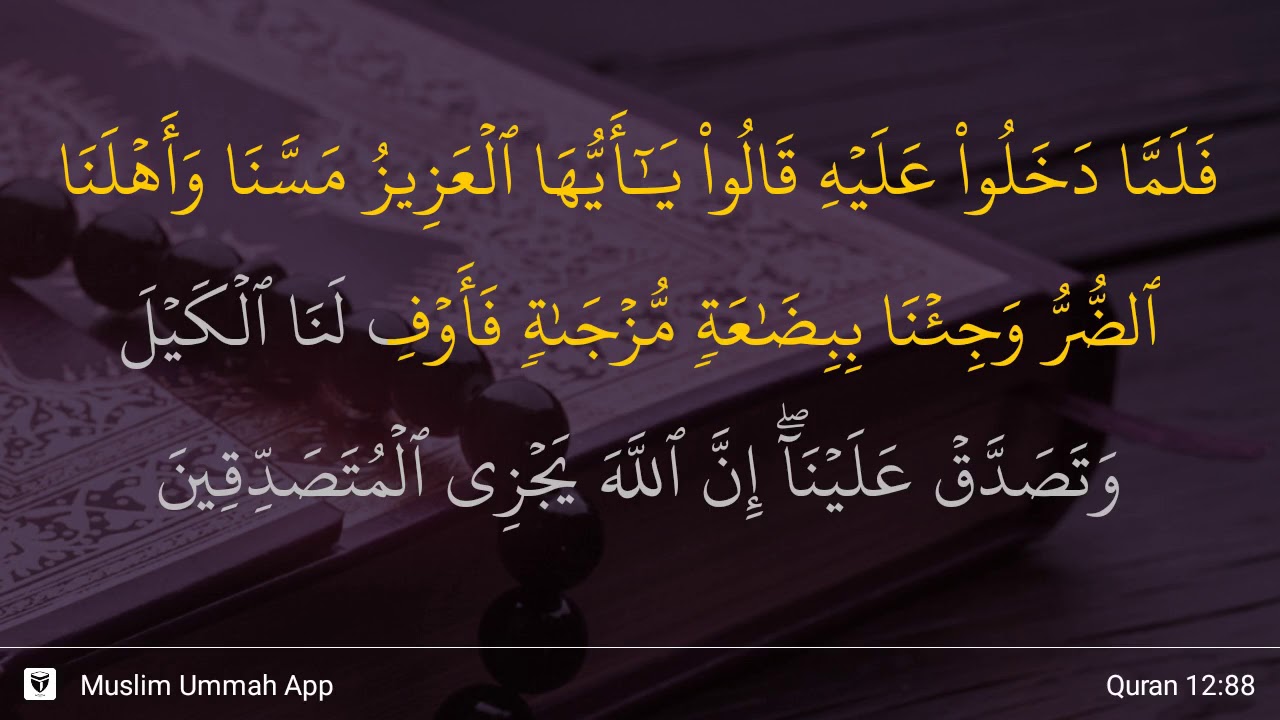 فَلَمَّا دَخَلُوا۟ عَلَيْهِ قَالُوا۟ يَـٰٓأَيُّهَا ٱلْعَزِيزُ مَسَّنَا وَأَهْلَنَا
ٱلضُّرُّ وَجِئْنَا بِبِضَـٰعَةٍ مُّزْجَىٰةٍ فَأَوْفِ لَنَا ٱلْكَيْلَ
وَتَصَدَّقْ عَلَيْنَآ ۖ إِنَّ ٱللَّهَ يَجْزِى ٱلْمُتَصَدِّقِينَ
Muslim Ummah App
Quran 12:88